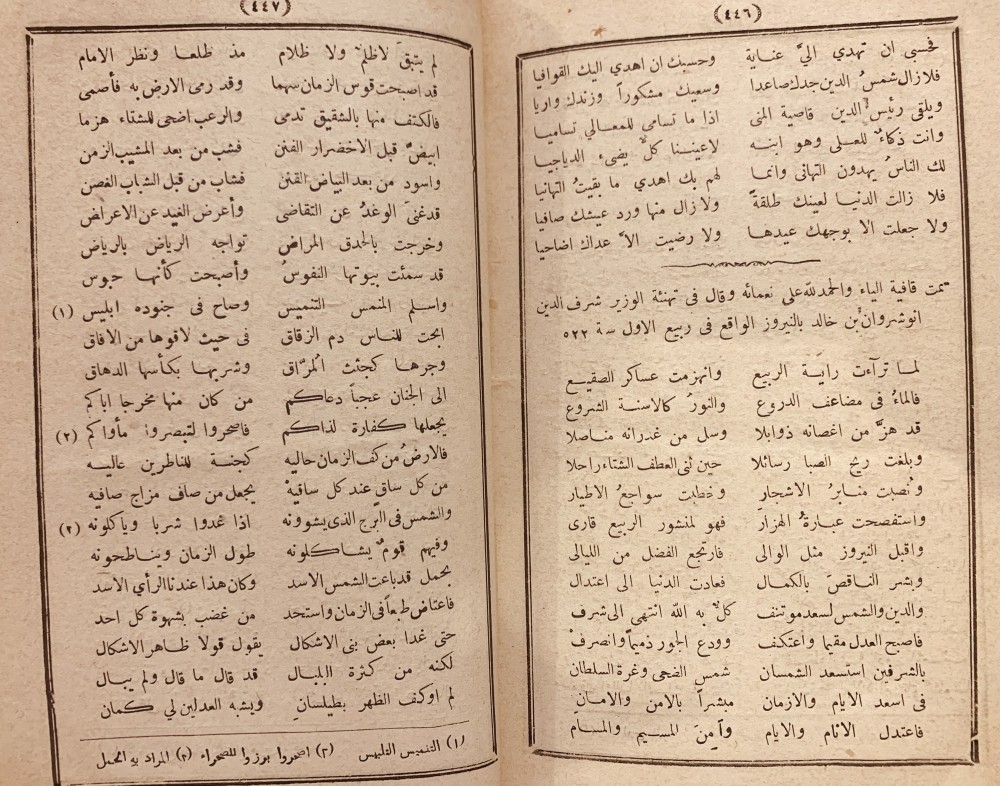 (٤٤٦)
فحسبى ان تهدي اليَّ عناية وحسبك ان اهدي اليك القوافيا
فلازال شمسُ الدين جدك صاعدا وسعيك مشكوراً وزندك واريا
ويلقى رئيس الدين قاصية المنى اذا ما تسامى للمعالي تساميا
وانت ذكاءٌ للعلى وهو ابنه لاعيننا كلٌّ يضيء الدياجيا
لك الناسُ يهدون التهانى وانما لهم بك اهدي ما بقيتُ التهانيا
فلا زالت الدنيا لعينك طلقةً ولا زال منها ورد عيشك صافيا
ولا جعلت الا بوجهك عيدها ولا رضيت الاَّ عداك اضاحيا
تمت قافية الياء والحمدلله على نعمائه وقال فى تهنئة الوزير شرف الدين
انوشروان بن خالد بالنيروز الواقع فى ربيع الاول سة ٥٢٢
لما ترآءت رايَة الربيع وانهزمت عساكر الصقيع
فالماءُ فى مضاعف الدروع والنورُ كالاسنة الشروع
قد هزَّ من اغصانه ذوابلا وسل من غدرانه مناصلا
وبلغت ريح الصبا رسائلا حين ثنى العطف الشتاء راحلا
ونُصبت منابرُ الاشجار وخطبت سواجعُ الاطيار
واستفصحت عبارةُ الهزار فهو لمنشور الربيع قارى
واقبل النيروز مثل الوالى فارتجع الفضل من الليالى
وبشر الناقصَ بالكمال فعادت الدنيا الى اعتدال
والدين والشمس لسعد موتنف كلٌ به الله انتهى الى شرف
فاصبح العدل مقيما واعتكف وودع الجور ذميما وانصرفْ
بالشرفين استسعد الشمسان شمس الضحى وغرة السلطان
فى اسعد الايام والازمان مبشراً بالامن والامان
فاعتدل الانام والايام وآمنَ المسيم والمسام
(٤٤٧)
لم يتبقَ لاظلمٌ ولا ظلام مذ طلعا ونظر الامام
قد اصبحت قوس الزمان سهما وقد رمى الارض به فأصمى
فالكتف منها بالشقيق تدمى والرعب اضحى للشتاء هزما
ابيضَّ قبل الاخضرار الفنن فشب من بعد المشيب الزمن
واسود من بعد البياض القنن فشاب من قبل الشباب الغصن
قد غنىَ الوغدُ عن التقاضى وأعرض الغيد عن الاعراض
وخرجت بالحدق المراض تواجه الرياض بالرياض
قد سمئت بيوتها النفوسُ وأصبحت كأنها حبوس
واسلم المنمس التنميس وصاح فى جنوده ابليس (١)
ابحت للناس دم الزقاق فى حيث لاقوها من الافاق
وجرها كجثث المرَّاق وشربها بكأسها الدهاق
الى الجنان عجباً دعاكم من كان منها مخرجا اباكم
يجعلها كفارة لذاكم فاصحروا لتبصروا مأواكم (٢)
فالارضُ من كف الزمان حاليه كجنة للناظرين عاليه
من كل ساقٍ عند كل ساقيهْ يجعل من صاف مزاج صافيه
والشمس فى البرج الذى يشوونه اذا غدوا شربا وياكلونه (٣)
وفيهم قومٌ يشاكلونه طول الزمان ويناطحونه
بحمل قد باعت الشمس الاسد وكان هذا عندنا الرأي الاسد
فاعتاض طبعاً فى الزمان واستحد من غضب بشهوة كل احد
حتى غدا بعض بنى الاشكال يقول قولا ظاهر الاشكال
لكنه من كثرة البلبال قد قال ما قال ولم يبال
لم اوكف الظهر بطيلسان ويشبه العدلين لي كمان
(١) التنميس التلبيس (٢) اصحروا برزوا للصحراء (٣) المراد به الحمل